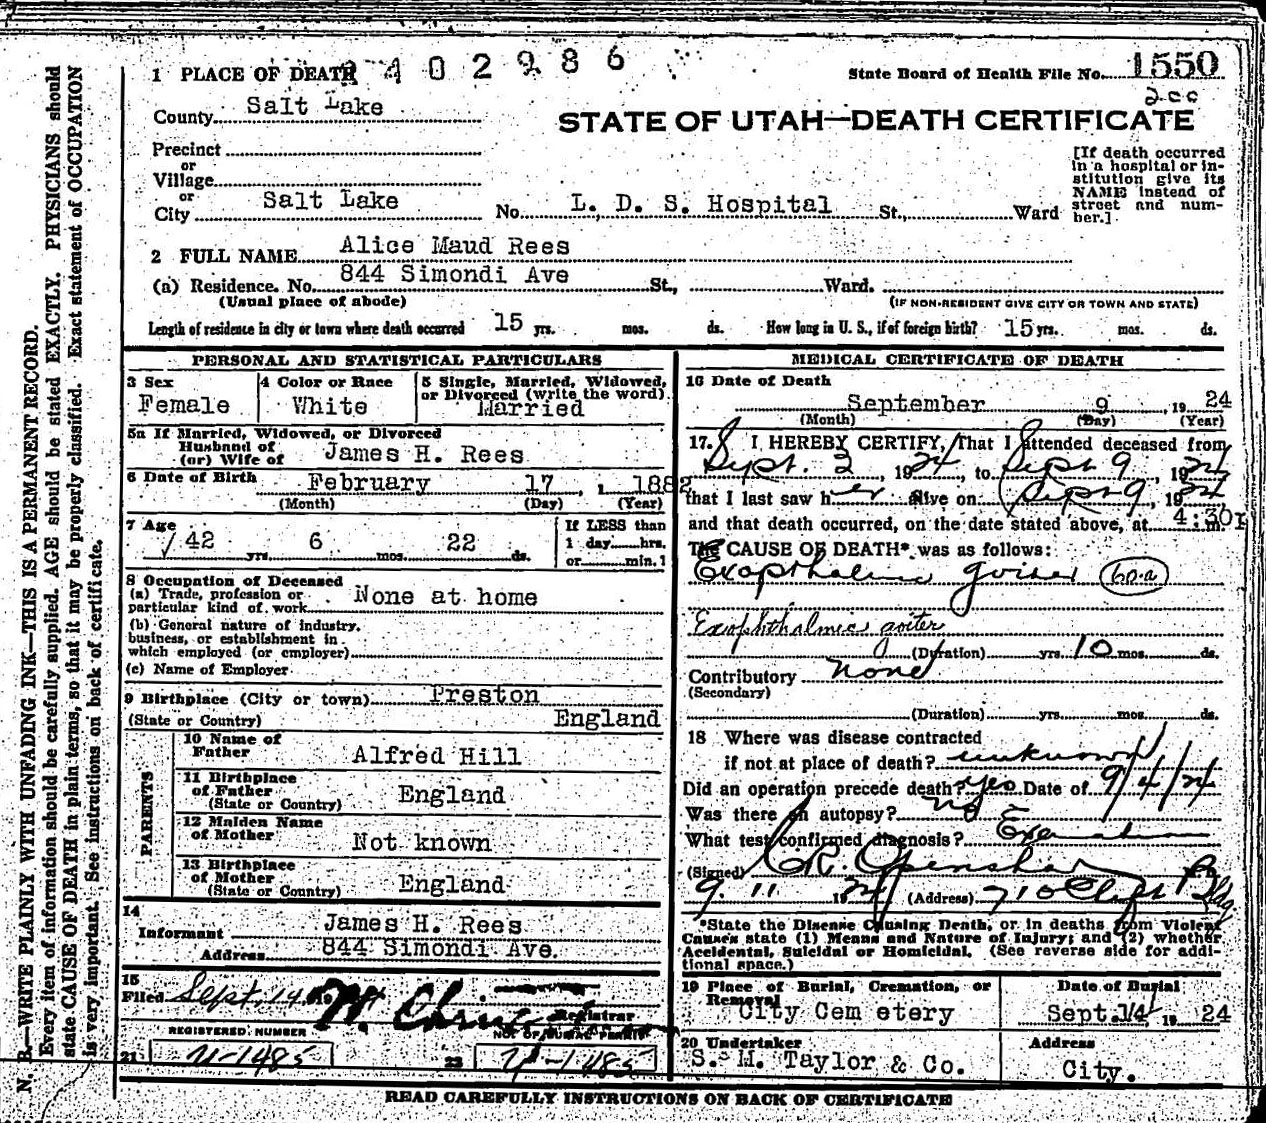 1 PLACE OF DEATH 402986
State Board of Health File No. 1550
200
County Salt Lake
STATE OF UTAH—DEATH CERTIFICATE
Precinct
or
Village
or
City Salt Lake No. L. D. S. Hospital St., Ward
[If death occurred
in a hospital or in-
stitution give its
NAME instead of
street and num-
ber.]
2 FULL NAME Alice Maud Rees
(a) Residence. No. 844 Simondi Ave St., Ward.
(Usual place of abode) (IF NON-RESIDENT GIVE CITY OR TOWN AND STATE)
Length of residence in city or town where death occurred 15 yrs. mos. ds. How long in U. S., if of foreign birth? 15 yrs. mos. ds.
PERSONAL AND STATISTICAL PARTICULARS
3 Sex
Female
4 Color or Race
White
5 Single, Married, Widowed,
or Divorced (write the word)
Married
5a If Married, Widowed, or Divorced
Husband of
(or) Wife of James H. Rees
6 Date of Birth February 17, 1882
(Month) (Day) (Year)
7 Age
42 yrs. 6 mos. 22 ds.
If LESS than
1 day hrs.
or min.?
8 Occupation of Deceased
(a) Trade, profession or
particular kind of work None at home
(b) General nature of industry,
business, or establishment in
which employed (or employer)
(c) Name of Employer
9 Birthplace (City or town) Preston
(State or Country) England
PARENTS
10 Name of
Father Alfred Hill
11 Birthplace
of Father England
(State or Country)
12 Maiden Name
of Mother Not known
13 Birthplace
of Mother England
(State or Country)
14
Informant James H. Rees
Address 844 Simondi Ave.
15
Filed Sept. 14
Registrar
REGISTERED NUMBER
21
MEDICAL CERTIFICATE OF DEATH
16 Date of Death
September 9, 1924
(Month) (Day) (Year)
17. I HEREBY CERTIFY, That I attended deceased from
Sept. 2, 1924, to Sept 9, 1924
that I last saw her alive on Sept 9, 1924
and that death occurred, on the date stated above, at 4:30 m.
The CAUSE OF DEATH* was as follows:
Exopthalmic goiter 60-a
Exophthalmic goiter
(Duration) yrs. 10 mos. ds.
Contributory none
(Secondary)
(Duration) yrs. mos. ds.
18 Where was disease contracted
if not at place of death? unknown
Did an operation precede death? yes Date of 9/4/24
Was there an autopsy? no
What test confirmed diagnosis?
(Signed)
9. 11 1924 (Address) 710 Bldg
*State the Disease Causing Death, or in deaths from Violent
Causes state (1) Means and Nature of Injury; and (2) whether
Accidental, Suicidal or Homicidal. (See reverse side for addi-
tional space.)
19 Place of Burial, Cremation, or
Removal
City Cem etery
Date of Burial
Sept. 14 1924
20 Undertaker
S. M. Taylor & Co.
Address
City.
READ CAREFULLY INSTRUCTIONS ON BACK OF CERTIFICATE
N. B.—WRITE PLAINLY WITH UNFADING INK—THIS IS A PERMANENT RECORD.
Every item of information should be carefully supplied. AGE should be stated EXACTLY. PHYSICIANS should
state CAUSE OF DEATH in plain terms, so that it may be properly classified. Exact statement of OCCUPATION
is very important. See instructions on back of certificate.